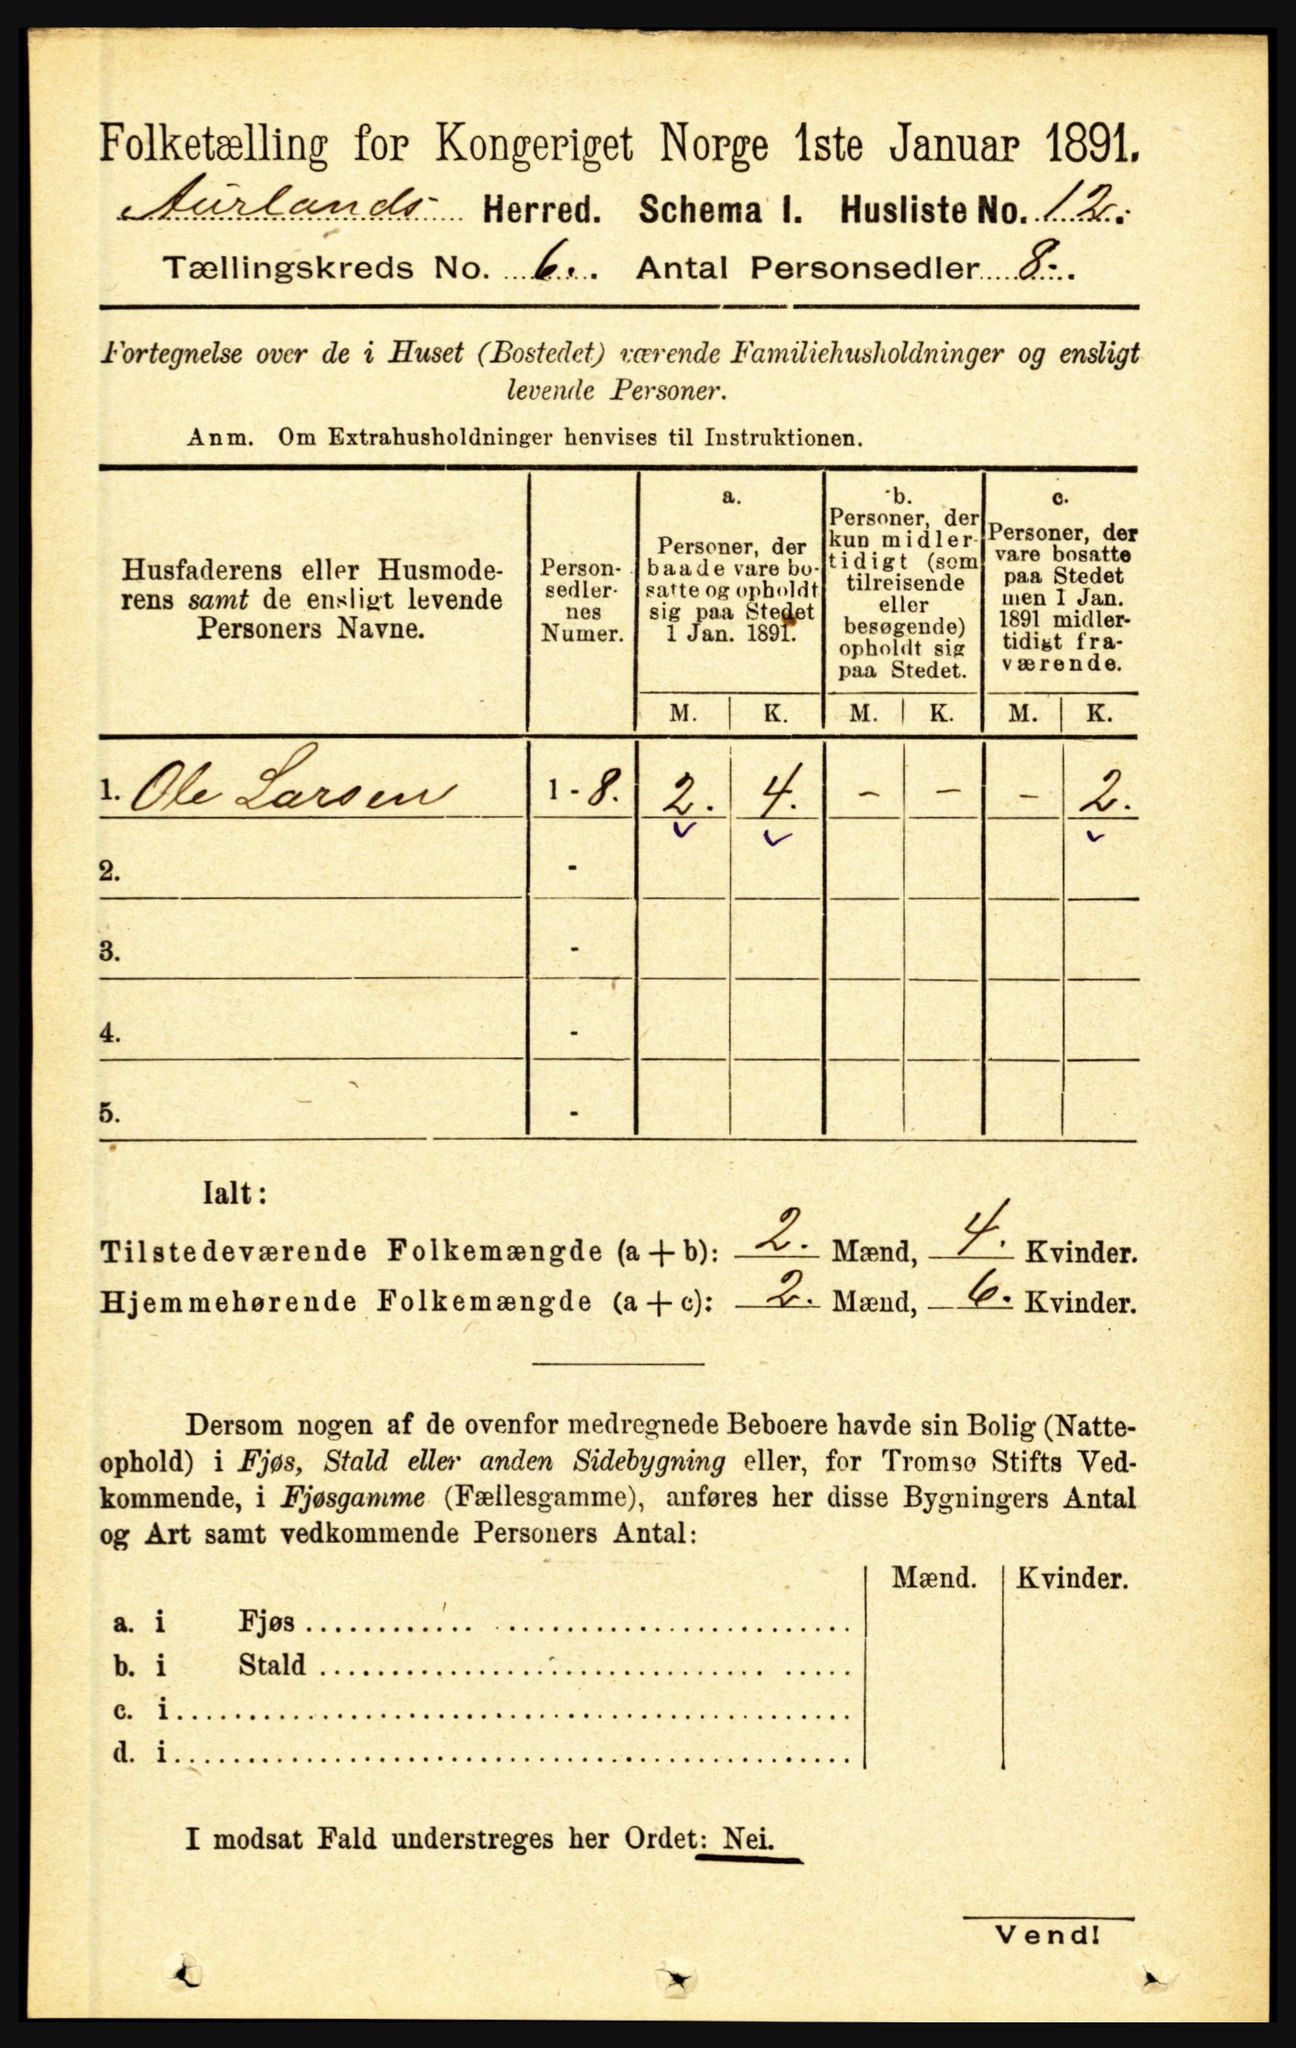 Folketælling for Kongeriget Norge 1ste Januar 1891.
Aurlands Herred. Schema I. Husliste No. 12.
Tællingskreds No. 6. Antal Personsedler 8.
Fortegnelse over de i Huset (Bostedet) værende Familiehusholdninger og ensligt
levende Personer.
Anm. Om Extrahusholdninger henvises til Instruktionen.
Husfaderens eller Husmode-
rens samt de ensligt levende
Personers Navne.
Person-
sedler-
nes
Numer.
a.
Personer, der
baade vare bo-
satte og opholdt
sig paa Stedet
1 Jan. 1891.
b.
Personer, der
kun midler-
tidigt (som
tilreisende
eller
besøgende)
opholdt sig
paa Stedet.
c.
Personer, der
vare bosatte
paa Stedet
men 1 Jan.
1891 midler-
tidigt fra-
værende.
M. K. M. K. M. K.
1. Ole Larsen 1 - 8. 2. 4. - - - 2.
2. -
3. -
4. -
5. -
Ialt:
Tilstedeværende Folkemængde (a + b): 2. Mænd, 4. Kvinder.
Hjemmehørende Folkemængde (a + c): 2. Mænd, 6. Kvinder.
Dersom nogen af de ovenfor medregnede Beboere havde sin Bolig (Natte-
ophold) i Fjøs, Stald eller anden Sidebygning eller, for Tromsø Stifts Ved-
kommende, i Fjøsgamme (Fællesgamme), anføres her disse Bygningers Antal
og Art samt vedkommende Personers Antal:
Mænd. Kvinder.
a. i Fjøs
b. i Stald
c. i
d. i
I modsat Fald understreges her Ordet: Nei.
Vend!